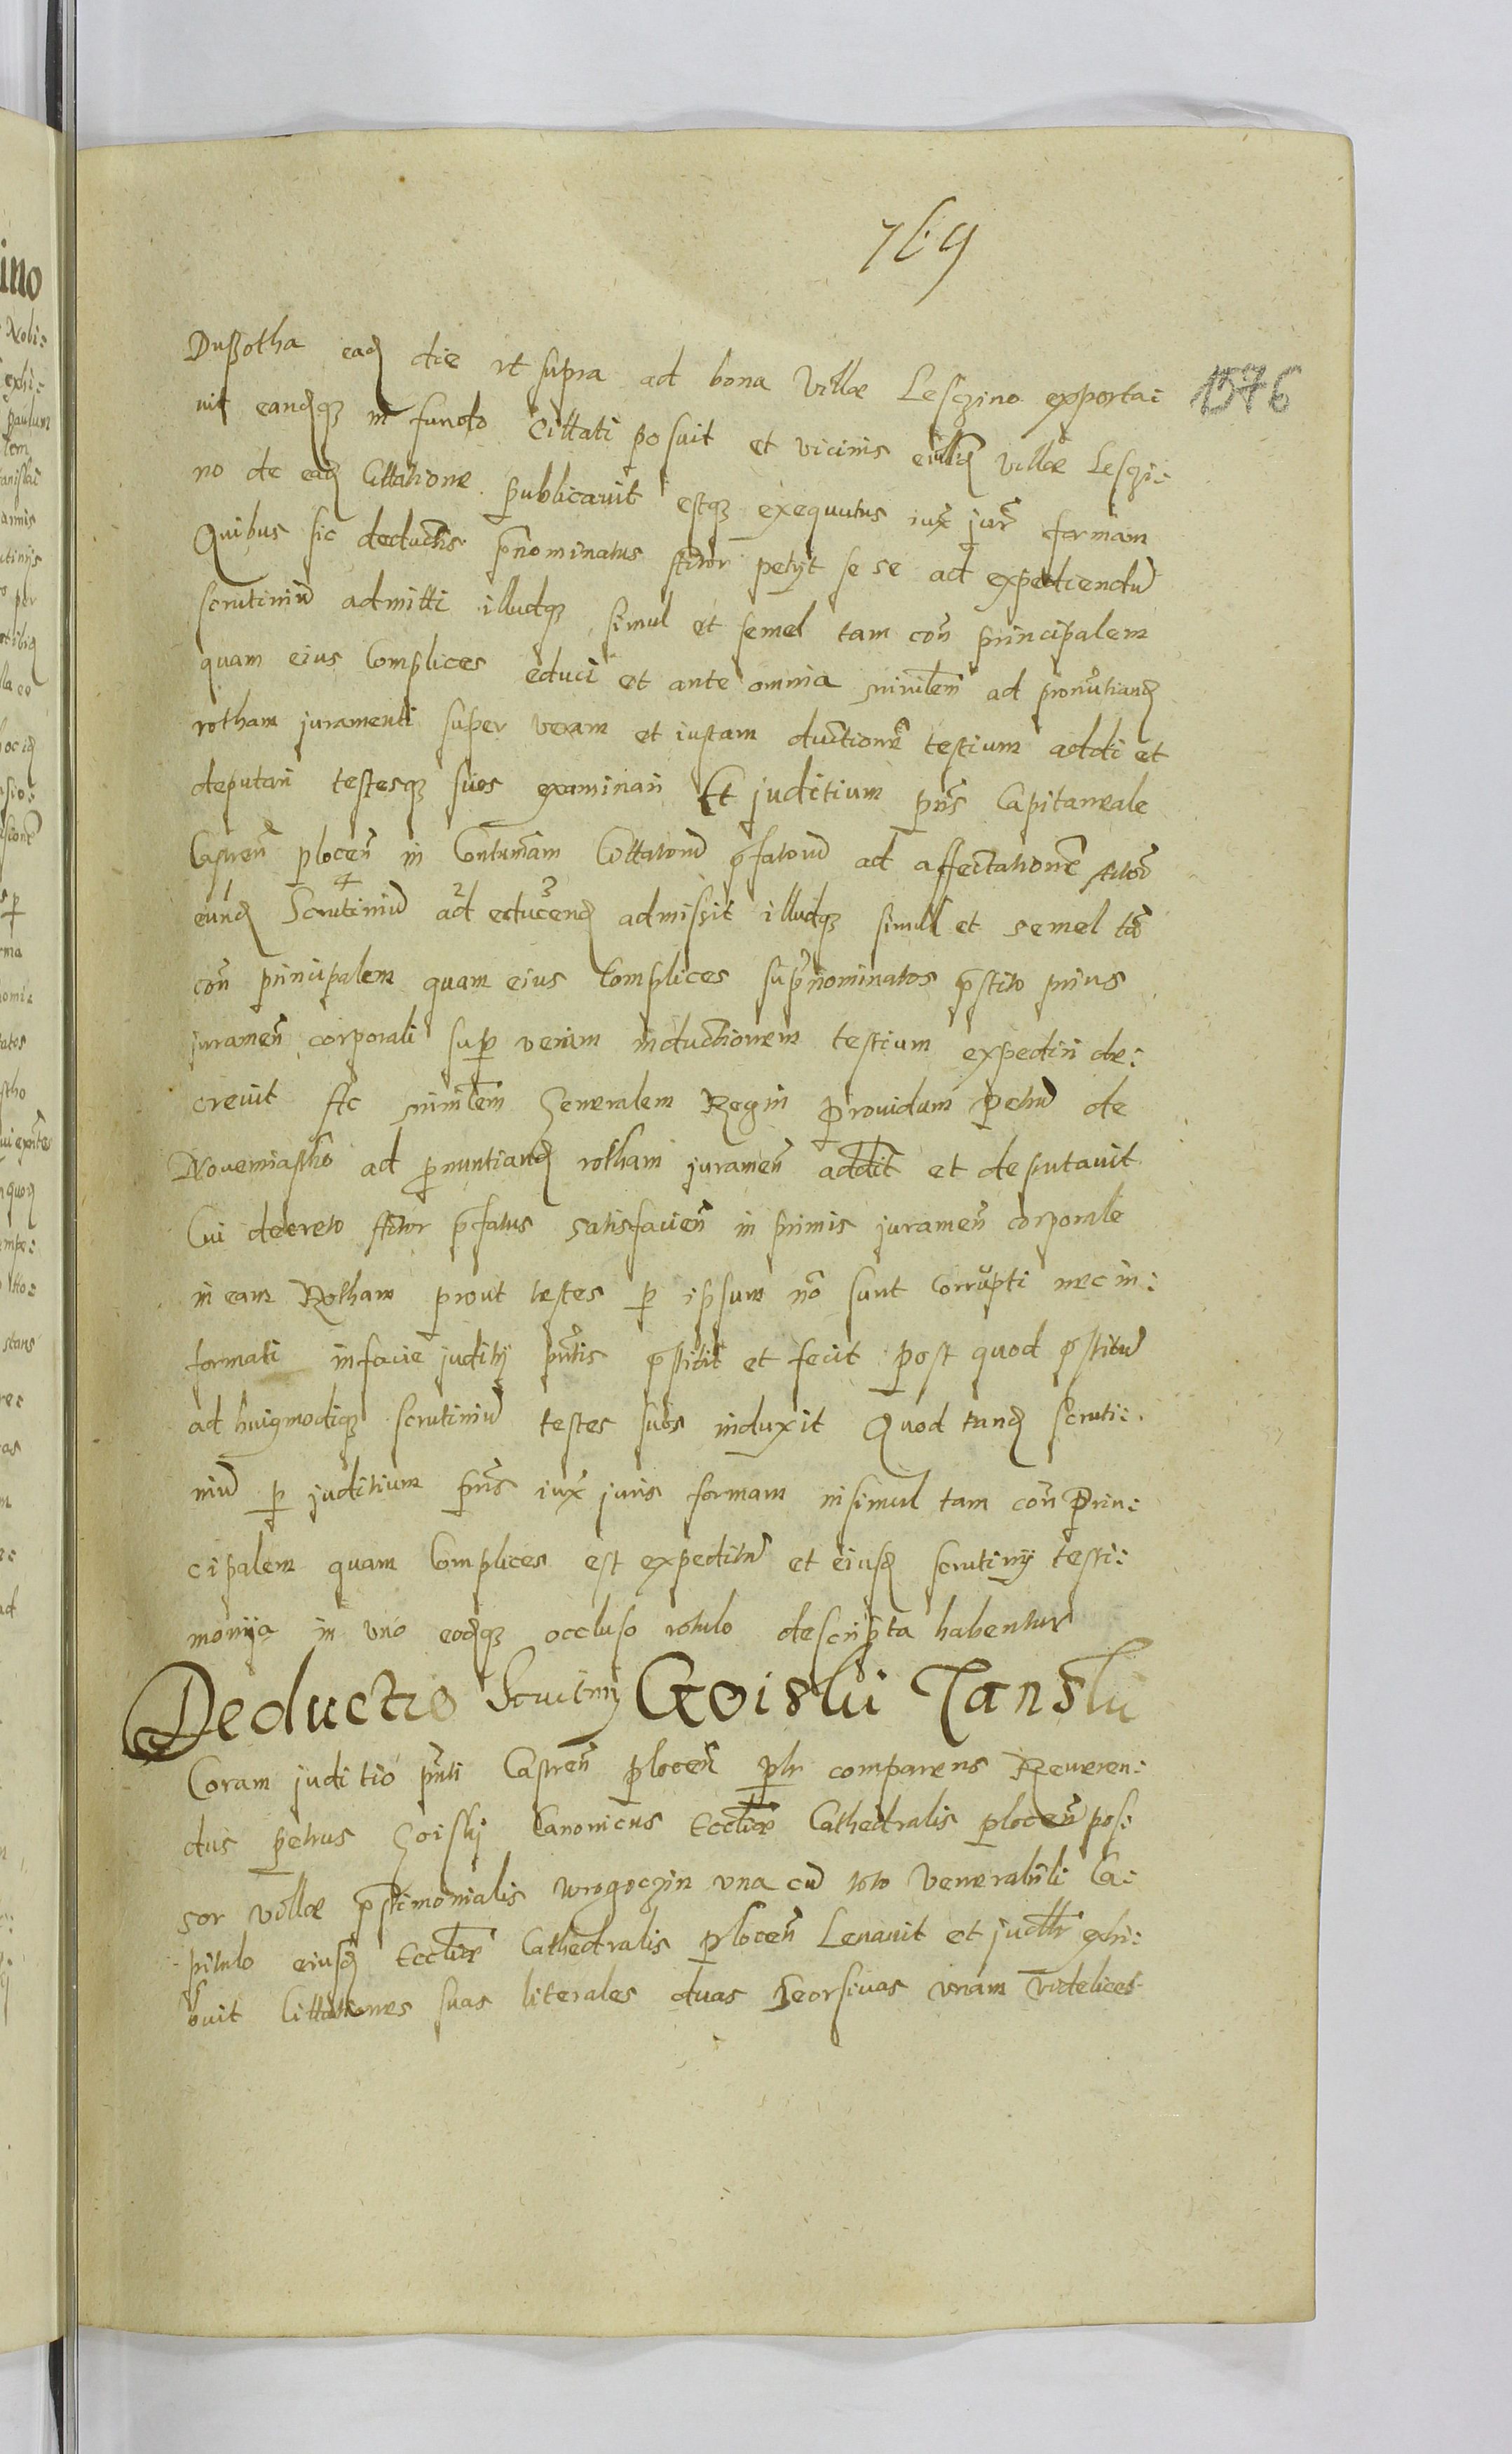 769
1576
Dußotha ead die vt supra ad bona villæ Lesczino exporta:
uit eandqz in fundo Cittati posuit et vicinis eiusd villæ Leszi:
no de ead Cittatione publicauit estqz exequutus iux jur formam
Quibus sic deductis pnominatus Actor petyt se se ad expediendu
scrutiniu admitti illudqz simul et semel tam con principalem
quam eius Complices educi et ante omnia minlem ad pronutiand
rotham juramenti super veram et iustam ductione testium addi et
deputari testesqz suos examinari Et juditium pns Capitaneale
Castren plocen in Contumam Cittatoru pfatoru ad affectatione Actor
eund Scrutiniu ad educend admissit illudqz simul et semel ta
con principalem quam eius Complices supnominatos pstito prius
juramen corporali sup veram inductionem testium expediri de:
creuit Ac minlem Generalem Regni prouidum petru de
Nouemiastho ad pnuntiand rotham juramen addit et deputauit
Cui decreto Actor pfatus satisfacien in primis juramen corporale
in eam Rotham prout testes p ipsum no sunt Corrupti nec in:
formati in facie juditij pntis pstitit et fecit post quod pstitu
ad huigmodiqz scrutiniu testes suos induxit Quod tand scruti:
niu p juditium pns iux juris formam insimul tam con Prin:
cipalem quam Complices est expeditu et eiusd scrutinij testi:
monija in vno eodqz occluso rotulo descripta habentur
Deductio Scrutinij Goiski Janski
Coram juditio pnti Castren plocen plr comparens Reueren:
dus petrus Goiskj Canonicus Eccliæ Cathedralis plocen pos:
sor villæ pstimonialis wrogoczin vna cu toto Venerabili Ca:
pitulo eiusd Eccliæ Cathedralis plocen Leuauit et judlr exhi:
buit Cittationes suas literales duas seorsiuas vnam videlicet